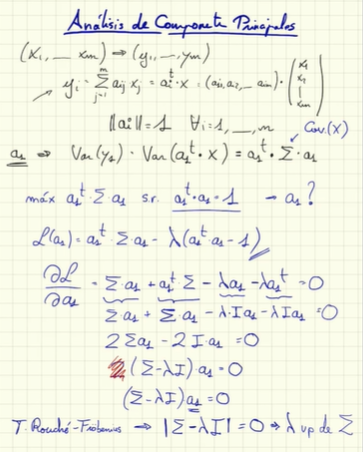 Análisis de Componente Principales
(x₁, — xₘ) ⇒ (y₁, —, yₘ)
yᵢ = Σⱼ₌₁ᵐ aᵢⱼ xⱼ = aᵢᵗ·x = (aᵢ₁, aᵢ₂, — aᵢₘ)·(x₁ x₂ | xₘ)
||aᵢ|| = 1 ∀i=1, —, m
Cov.(X)
a₁ ⇒ Var(y₁) = Var(a₁ᵗ·x) = a₁ᵗ·Σ·a₁
máx a₁ᵗ·Σ·a₁ s.r. a₁ᵗ·a₁=1 → a₁?
L(a₁) = a₁ᵗ Σ a₁ - λ(a₁ᵗ a₁ - 1)
∂L/∂a₁ = Σ·a₁ + a₁ᵗ Σ - λa₁ - λa₁ᵗ = 0
Σ a₁ + Σ a₁ - λ·I a₁ - λI a₁ = 0
2Σa₁ - 2 I·a₁ = 0
2(Σ-λI)·a₁ = 0
(Σ-λI)a₁ = 0
T. Rouché-Frobenius → |Σ-λI| = 0 ⇒ λ vp de Σ